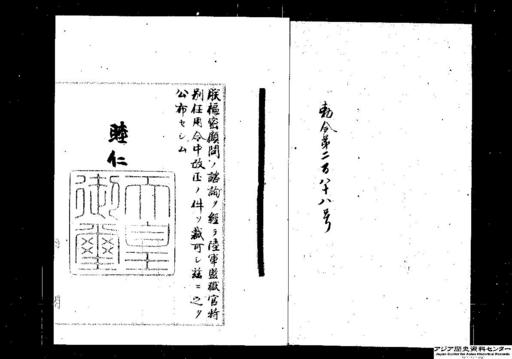 勅令第二百八十八号
朕樞密顧問ノ諮詢ヲ經テ陸軍監獄官特
別任用令中改正ノ件ヲ裁可シ茲ニ之ヲ
公布セシム
睦仁
天皇
御璽
月
アジア歴史資料センター
Japan Center for Asian Historical Records